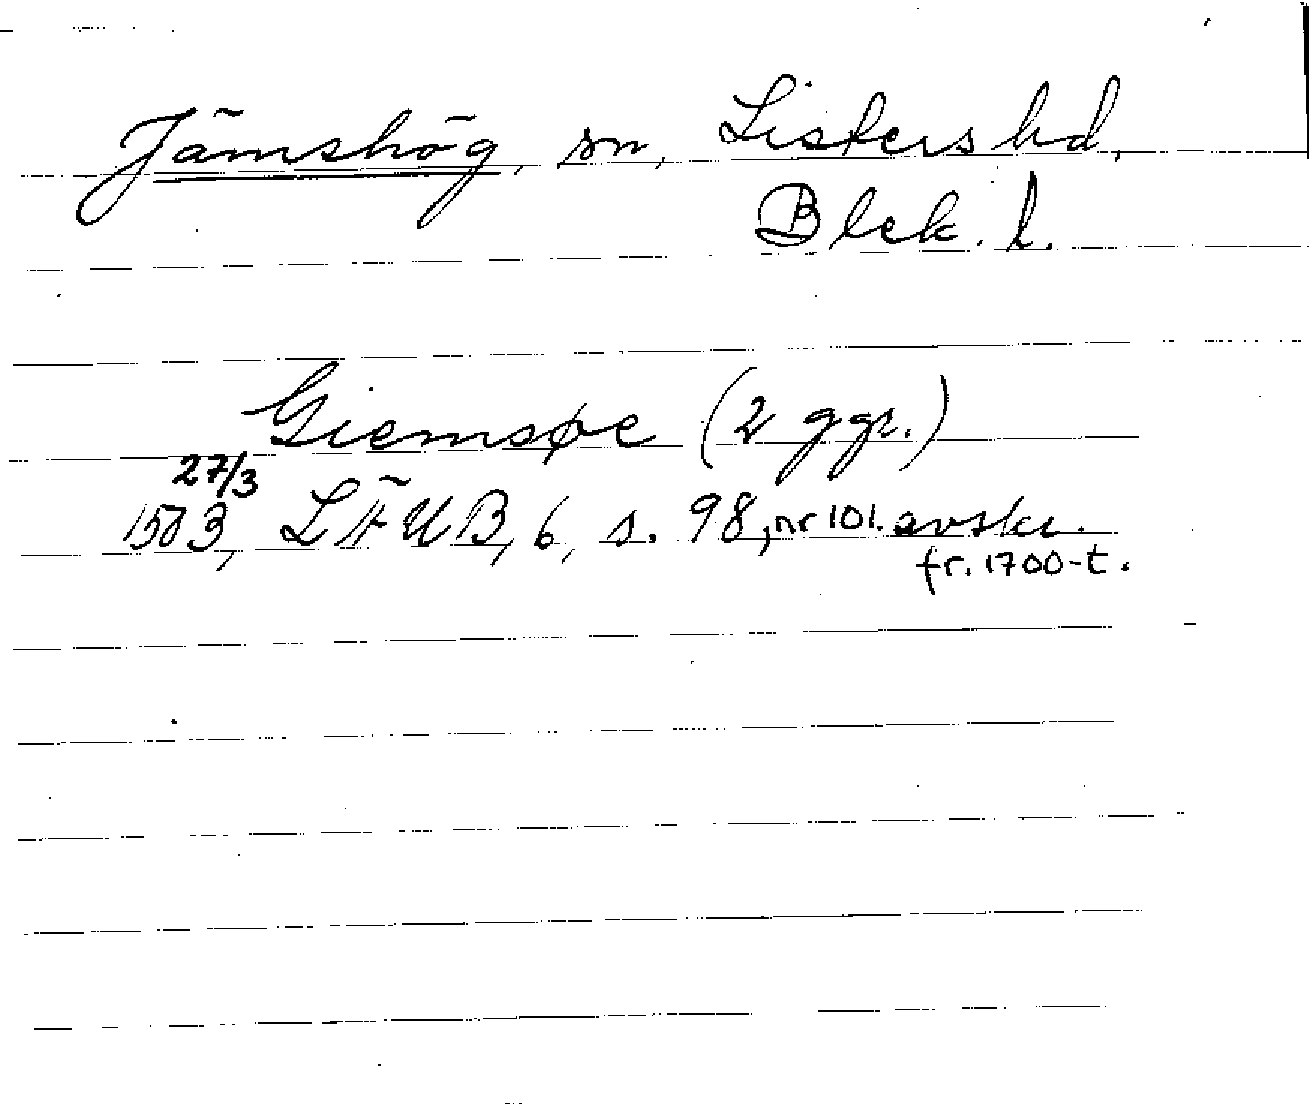 Jämshög, sn, Listers hd,
Blek. l.
Giemsøe (2 ggr.)
27/3
1503, LÄUB, 6, s. 98, nr 101. avskr.
fr. 1700-t.